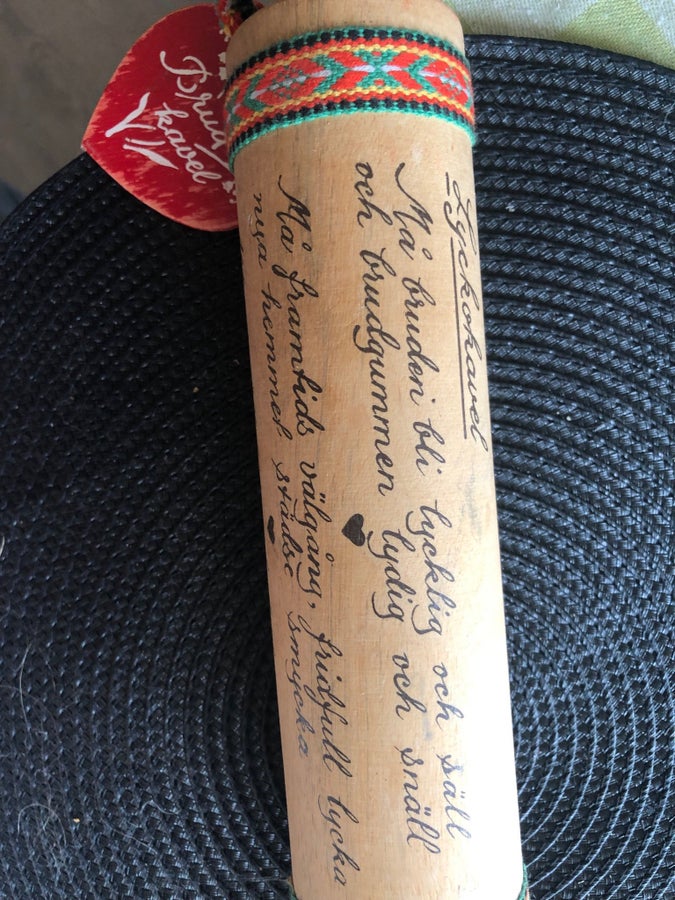 Brud
kavel
Lyckokavel
Må bruden bli lycklig och säll
och brudgummen lydig och snäll
Må framtids välgång, fridfull lycka
nya hemmet städse smycka